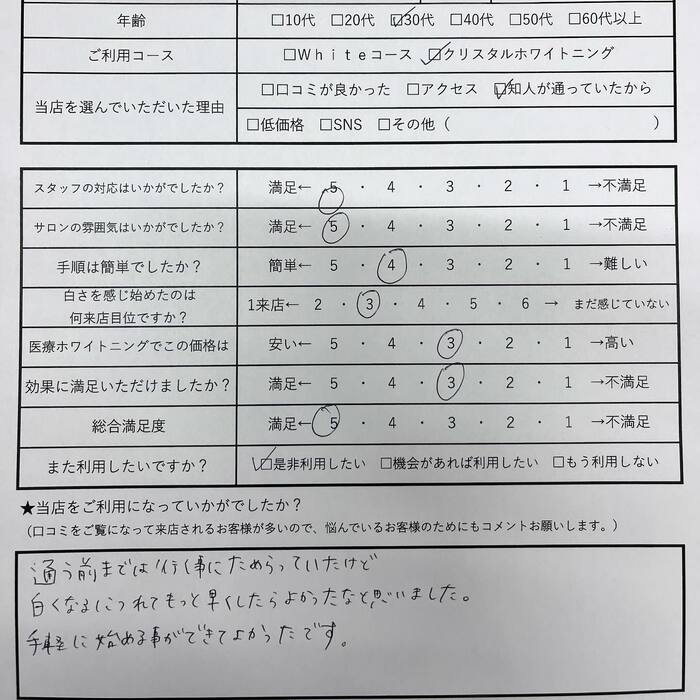 年齢 □10代 □20代 ☑30代 □40代 □50代 □60代以上
ご利用コース □Whiteコース ☑クリスタルホワイトニング
当店を選んでいただいた理由 □口コミが良かった □アクセス ☑知人が通っていたから
□低価格 □SNS □その他（ ）
スタッフの対応はいかがでしたか？ 満足← 5 ・ 4 ・ 3 ・ 2 ・ 1 →不満足
サロンの雰囲気はいかがでしたか？ 満足← 5 ・ 4 ・ 3 ・ 2 ・ 1 →不満足
手順は簡単でしたか？ 簡単← 5 ・ 4 ・ 3 ・ 2 ・ 1 →難しい
白さを感じ始めたのは
何来店目位ですか？ 1来店← 2 ・ 3 ・ 4 ・ 5 ・ 6 → まだ感じていない
医療ホワイトニングでこの価格は 安い← 5 ・ 4 ・ 3 ・ 2 ・ 1 →高い
効果に満足いただけましたか？ 満足← 5 ・ 4 ・ 3 ・ 2 ・ 1 →不満足
総合満足度 満足← 5 ・ 4 ・ 3 ・ 2 ・ 1 →不満足
また利用したいですか？ ☑是非利用したい □機会があれば利用したい □もう利用しない
★当店をご利用になっていかがでしたか？
（口コミをご覧になって来店されるお客様が多いので、悩んでいるお客様のためにもコメントお願いします。）
通う前までは行く事にためらっていたけど
白くなるにつれてもっと早くしたらよかったなと思いました。
手軽に始める事ができてよかったです。